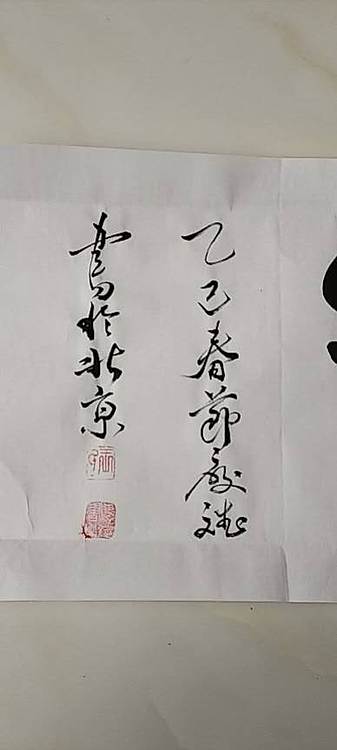 乙巳春節嚴斌
書於北京